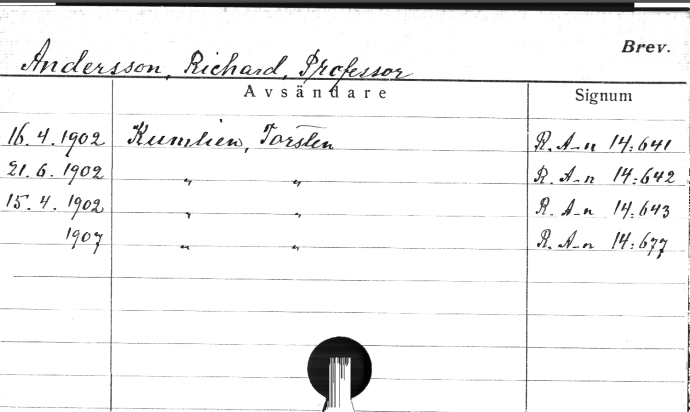 Brev.
Andersson, Richard, Professor
Avsändare Signum
16.4.1902 Kumlien, Torsten R. A-n 14:641
21.6.1902 " " R. A-n 14:642
15.4.1902 " " R. A-n 14:643
1907 " " R. A-n 14:677